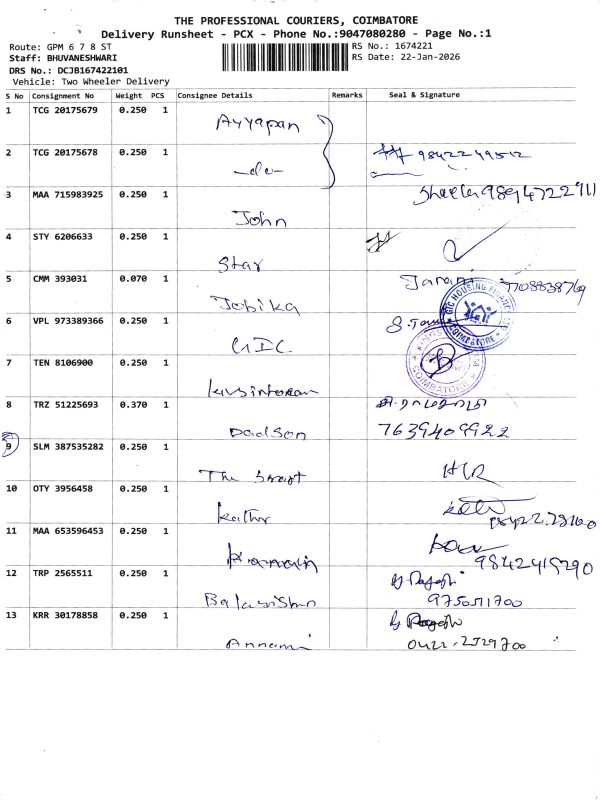 THE PROFESSIONAL COURIERS, COIMBATORE
Delivery Runsheet - PCX - Phone No.:9047080280 - Page No.:1
Route: GPM 6 7 8 ST
RS No.: 1674221
Staff: BHUVANESHWARI
RS Date: 22-Jan-2026
DRS No.: DCJB167422101
Vehicle: Two Wheeler Delivery
S No Consignment No Weight PCS Consignee Details Remarks Seal & Signature
1 TCG 20175679 0.250 1 Ayyapan
2 TCG 20175678 0.250 1 -do- 9842249512
3 MAA 715983925 0.250 1 John Sheela 9894722911
4 STY 6206633 0.250 1 Star
5 CMM 393031 0.070 1 Jobika Janani 7708838769
6 VPL 973389366 0.250 1 GIC
GIC HOUSING FINANCE LTD COIMBATORE
7 TEN 8106900 0.250 1
COIMBATORE
8 TRZ 51225693 0.370 1 Dadson 7639409922
9 SLM 387535282 0.250 1 The
10 OTY 3956458 0.250 1 Kathir
11 MAA 653596453 0.250 1 9842419290
12 TRP 2565511 0.250 1 Rajesh 9750511700
13 KRR 30178858 0.250 1 Annami Rajesh 0422-2529700